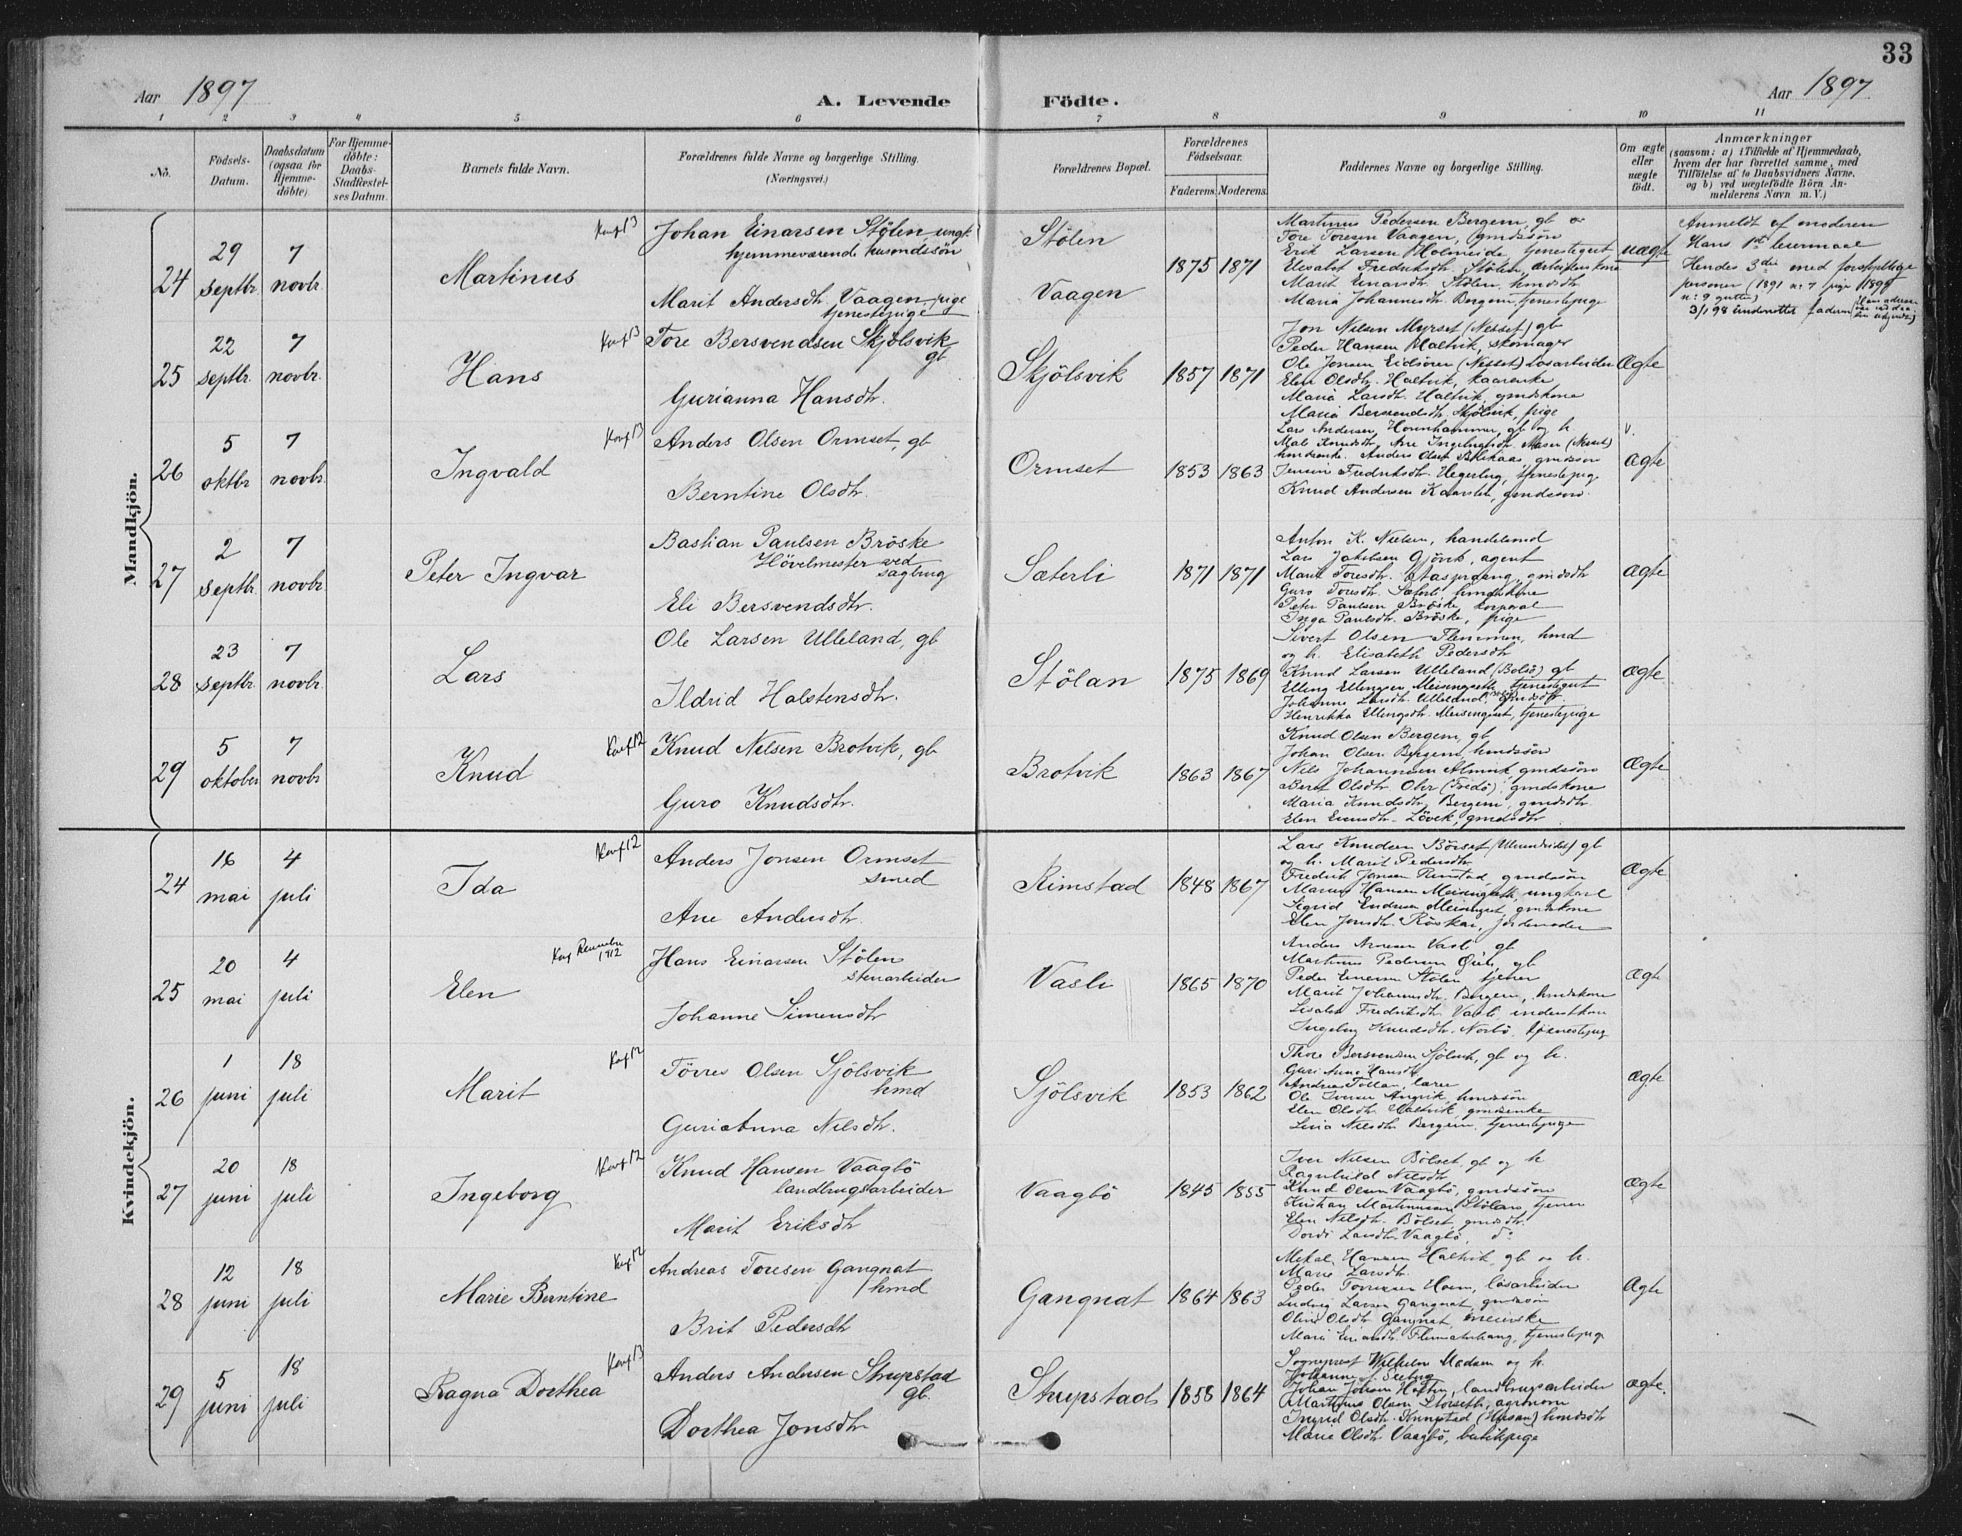 33
Aar 1897
A. Levende Födte.
Aar 1897
1 2 3 4 5 6 7 8 9 10 11
No.
Födsels-Datum.
Daabsdatum (ogsaa for Hjemme-döbte)
For Hjemme-döbte: Daabs-Stadfæstel-ses Datum.
Barnets fulde Navn.
Forældrenes fulde Navne og borgerlige Stilling.
(Næringsvei.)
Forældrenes Bopæl.
Forældrenes Födselsaar.
Faderens. Moderens.
Faddernes Navne og borgerlige Stilling.
Om ægte eller uægte födt.
Anmærkninger
(saasom: a) i Tilfælde af Hjemmedaab,
hvem der har forrettet samme, med
Tilföielse af to Daabsvidners Navne.
og b) ved uægtefödte Börn An-
melderens Navn m. V.)
Mandkjön.
24 29 septbr. 7 novbr. Martinus Konf 13
Johan Einarsen Stölen, ungk.
hjemmeværende husmandssön
Marit Andersdtr. Vaagen, pige
tjenestepige
Stölen
Vaagen
1875 1871
Martinus Pedersen Bergem, gb
Tore Toresen Vaagen, gmdssön
Erik Larsen Holmeide, tjenestegut
Elisabet Fredriksdtr. Stölen, arbeiderkone
Marit Einarsdtr. Stölen, hmdsdtr
Maria Johannesdtr. Bergem, tjenestepige
uægte
Anmeldt af moderen
Hans 1ste leiermaal
Hendes 3die med forskjellige
personer (1891 n: 7 pige 1895
n: 9 gutter)
3/1 98 underrettet faderen
25 22 septbr. 7 novbr. Hans Konf 13
Tore Bersvendsen Skjölsvik
gb
Gurianna Hansdtr.
Skjölsvik
1857 1871
Jon Nilsen Myrset (Nesset) gb
Peder Hansen Haltvik, skomager
Ole Jonsen Eidsören (Nesset) Løsarbeider
Elen Olsdtr. Haltvik, kaarenke
Maria Larsdtr. Haltvik, gmdskone
Maria Bersvendsdtr. Skjölsvik, pige
Ægte
26 5 oktbr 7 novbr. Ingvald Konf 13
Anders Olsen Ormset, gb
Berntine Olsdtr.
Ormset
1853 1863
Lars Andersen Hounhammer, gb og h.
Knud Andersen Kaarslei, gmdssön
ægte
27 2 septbr. 7 novbr. Peter Ingvar
Bastian Paulsen Bröske
Hövelmester ved
sagbrug
Eli Bersvendsdtr.
Sæterli
1871 1871
Anton K. Nielsen, handelsmd
Lars Jakobsen Gjörvik, agent
Guro Toresdtr. Sæterli hmdskone
Peter Paulsen Bröske, korporal
Inga Paulsdtr. Bröske, pige
ægte
28 23 septbr. 7 novbr. Lars
Ole Larsen Ulleland, gb
Ildrid Halstensdtr.
Stölan
1875 1869
Sivert Olsen Flenmoen, hmd
og h. Elisabeth Pedersdtr
Knud Larsen Ulleland (Bolsö) gb
Elling Ellingsen Meisingseth, tjenestegut
Johanne Larsdtr. Ulleland, gmdsdtr
Henrikka Ellingsdtr. Meisingset, tjenestepige
ægte
29 5 oktober 7 novbr Knud Konf 12
Knud Nilsen Brotvik, gb
Guro Knudsdtr.
Brotvik
1863 1867
Knud Olsen Bergem, gb
Johan Olsen Bergem, hmdssön
Nils Johannesen Almvik, gmdssön
Beret Olsdtr. Ohr (Fredö), gmdskone
Maria Knudsdtr. Bergem, gmdsdtr.
Elen Evensdtr. Lövik, gmdsdtr
Ægte
Kvindekjön.
24 16 mai 4 juli Ida Konf 12
Anders Jonsen Ormset
smed
Ane Andersdtr.
Rimstad
1848 1867
Lars Knudsen Börset gb
og h. Marit Pedersdtr.
Fredrik Jensen Rimstad, gmdssön
Marius Hansen Meisingseth, ungkarl
Sigrid Endresen Meisingset, gmdskone
Elen Jonsdtr. Röskar, jordemoder
Ægte
25 20 mai 4 juli Elen 1912
Hans Einarsen Stölen
stenarbeider
Johanne Simensdtr
Vasli
1865 1870
Anders Arnesen Vasli gb
Martinus Pedersen gb
Peder Einarsen Stölen tjener
Marit Johannsdtr. Bergem, hmdskone
Lisabet Fredriksdtr. Vasli, inderstkone
Ingeborg Knudsdtr. Norbö, tjenestepige
Ægte
26 1 juni 18 juli Marit Konf 12
Törres Olsen Sjölsvik
hmd
Gurianna Nilsdtr.
Sjölsvik
1853 1862
Thore Bersvendsen Sjölsvik, gb og h.
Guri Anna Hansdtr
Andreas Tollan, lærer
Ole Iversen Angvik, hmdssön
Elen Olsdtr. Haltvik, gmdsenke
Lina Nilsdtr. Bergem, tjenestepige
Ægte
27 20 juni 18 juli Ingeborg Konf 12
Knud Hansen Vaagbö
landbrugsarbeider
Marit Eriksdtr
Vaagbö
1845 1855
Iver Nilsen Bölset, gb og h
Ragnhild Nilsdtr
Knud Olsen Vaagbö, gmdssön
Kristian Martinussen Stölan, tjener
Elen Nilsdtr. Bölset, gmdsdtr.
Dordi Larsdtr. Vaagbö, do
Ægte
28 12 juni 18 juli Marie Berntine Konf 12
Andreas Toresen Gangnat
hmd
Brit Pedersdtr
Gangnat
1864 1863
Mikal Hansen Haltvik, gb og h.
Marie Larsdtr.
Peder Toresen Hoem, løsarbeider
Ludvig Larsen Gangnat, gmdssön
Olina Olsdtr. Gangnat,
tjenestepige
Ægte
29 5 juni 18 juli Ragna Dorthea Konf 13
Anders Andersen Strupstad
gb.
Dorthea Jonsdtr
Strupstad
1858 1864
Sogneprest Wilhelm Madsen og h.
Johanne f. Seeberg
landbrugsarbeider
Martinus Olsen Storseth, agronom
Ingrid Olsdtr. hmdsdtr
Marie Olsdtr. Vaagbö, butikpige
ægte.